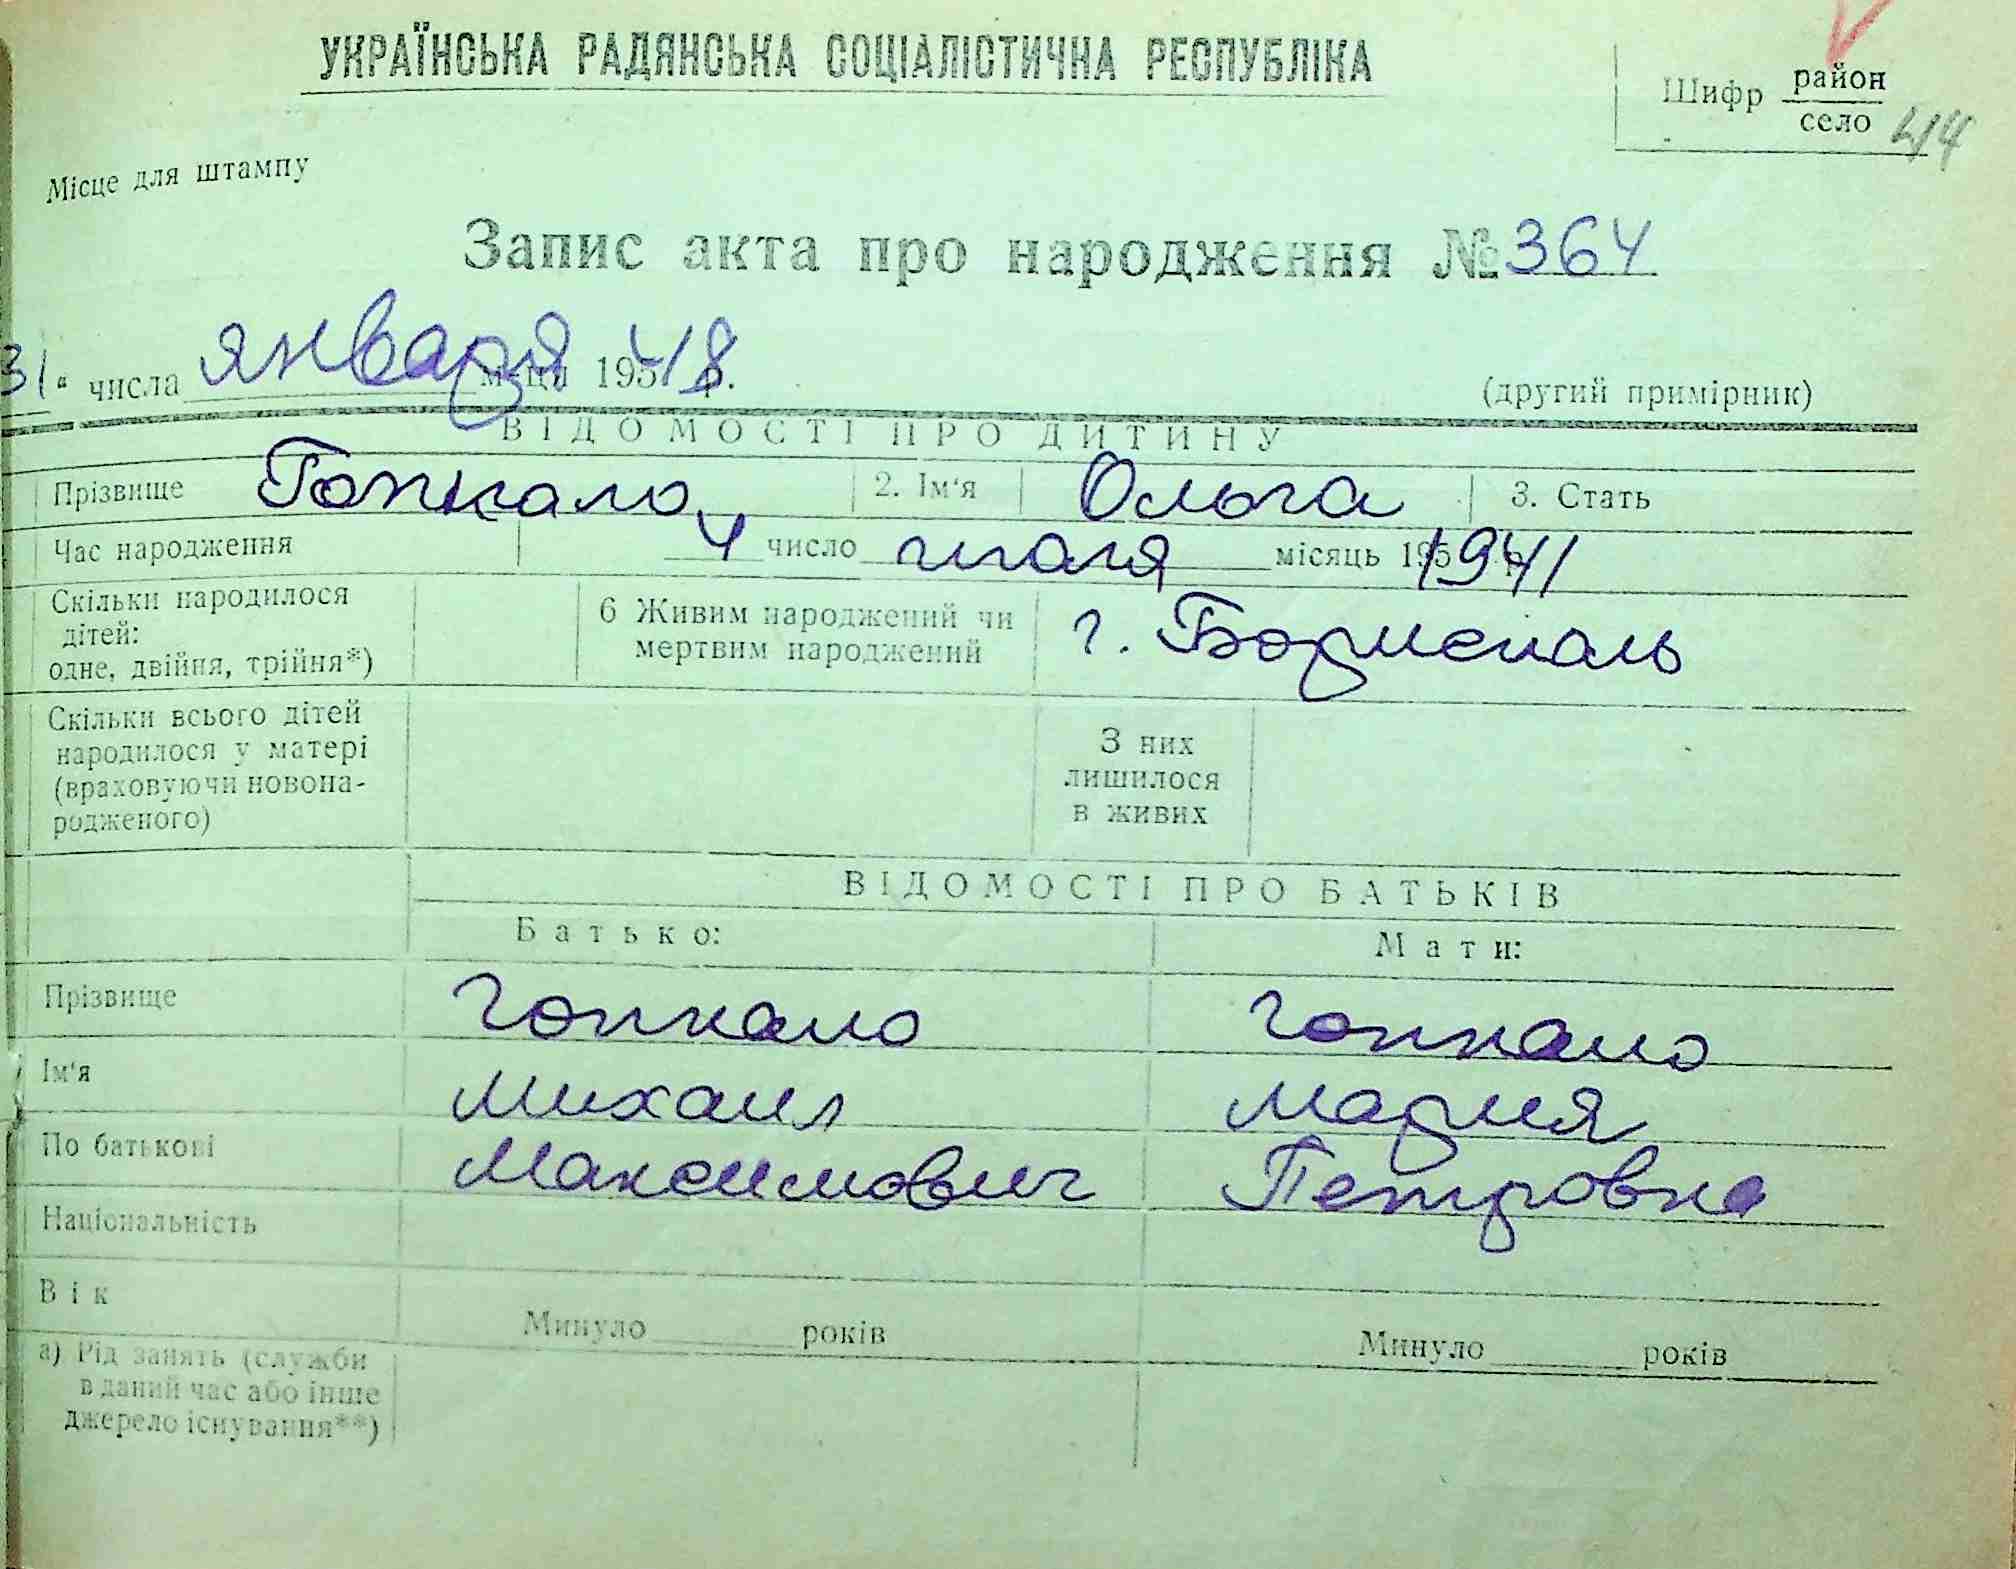 УКРАЇНСЬКА РАДЯНСЬКА СОЦІАЛІСТИЧНА РЕСПУБЛІКА
Шифр район
село 44
Місце для штампу
Запис акта про народження № 364
31 " числа января м-ця 195 48 р.
(другий примірник)
ВІДОМОСТІ ПРО ДИТИНУ
Прізвище Гопкало 2. Ім'я Ольга 3. Стать
Час народження 4 число июля місяць 195 1941 р.
Скільки народилося дітей: одне, двійня, трійня*) 6 Живим народжений чи мертвим народжений г. Борисполь
Скільки всього дітей народилося у матері (враховуючи новонародженого) З них лишилося в живих
ВІДОМОСТІ ПРО БАТЬКІВ
Батько: Мати:
Прізвище Гопкало Гопкало
Ім'я Михаил Мария
По батькові Максимович Петровна
Національність
Вік Минуло років Минуло років
а) Рід занять (служби в даний час або інше джерело існування**)